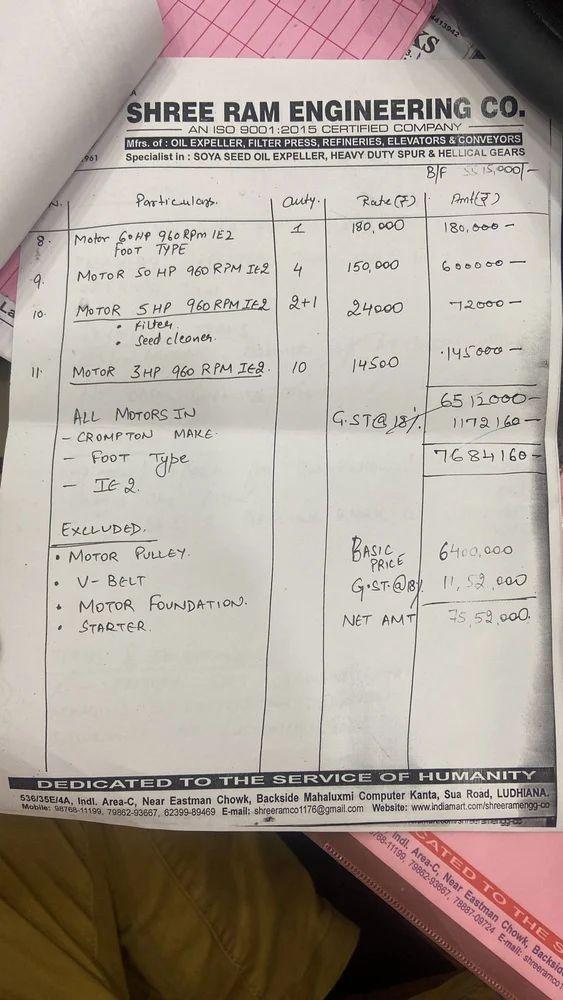 4413942
KS
SHREE RAM ENGINEERING CO.
AN ISO 9001:2015 CERTIFIED COMPANY
Mfrs. of : OIL EXPELLER, FILTER PRESS, REFINERIES, ELEVATORS & CONVEYORS
961 Specialist in : SOYA SEED OIL EXPELLER, HEAVY DUTY SPUR & HELLICAL GEARS
B/F 5515,000/-
N. Particulars. Quty. Rate(₹) Amt(₹)
8. Motor 60HP 960 RPm IE2 1 180,000 180,000 -
FOOT TYPE
9. MOTOR 50 HP 960 RPM IE2 4 150,000 600000 -
10. MOTOR 5HP 960 RPM IE2 2+1 24000 72000 -
• Filter.
• Seed cleaner.
11. MOTOR 3HP 960 RPM IE2. 10 14500 145000 -
6512000 -
ALL MOTORS IN G.ST@18% 1172160 -
- CROMPTON MAKE.
- FOOT Type 7684160 -
- IE 2.
EXCLUDED.
• MOTOR PULLEY. BASIC PRICE 6400,000
• V-BELT G.ST.@18% 11,52,000
• MOTOR FOUNDATION.
• STARTER. NET AMT 75,52,000.
DEDICATED TO THE SERVICE OF HUMANITY
536/35E/4A, Indl. Area-C, Near Eastman Chowk, Backside Mahaluxmi Computer Kanta, Sua Road, LUDHIANA.
Mobile: 98768-11199, 79862-93667, 62399-89469 E-mail: shreeramco1176@gmail.com Website: www.indiamart.com/shreeramengg-co
CATED TO THE S
Indl. Area-C, Near Eastman Chowk, Backside
768-11199, 79862-93667, 78887-09724 E-mail: shreeramco1